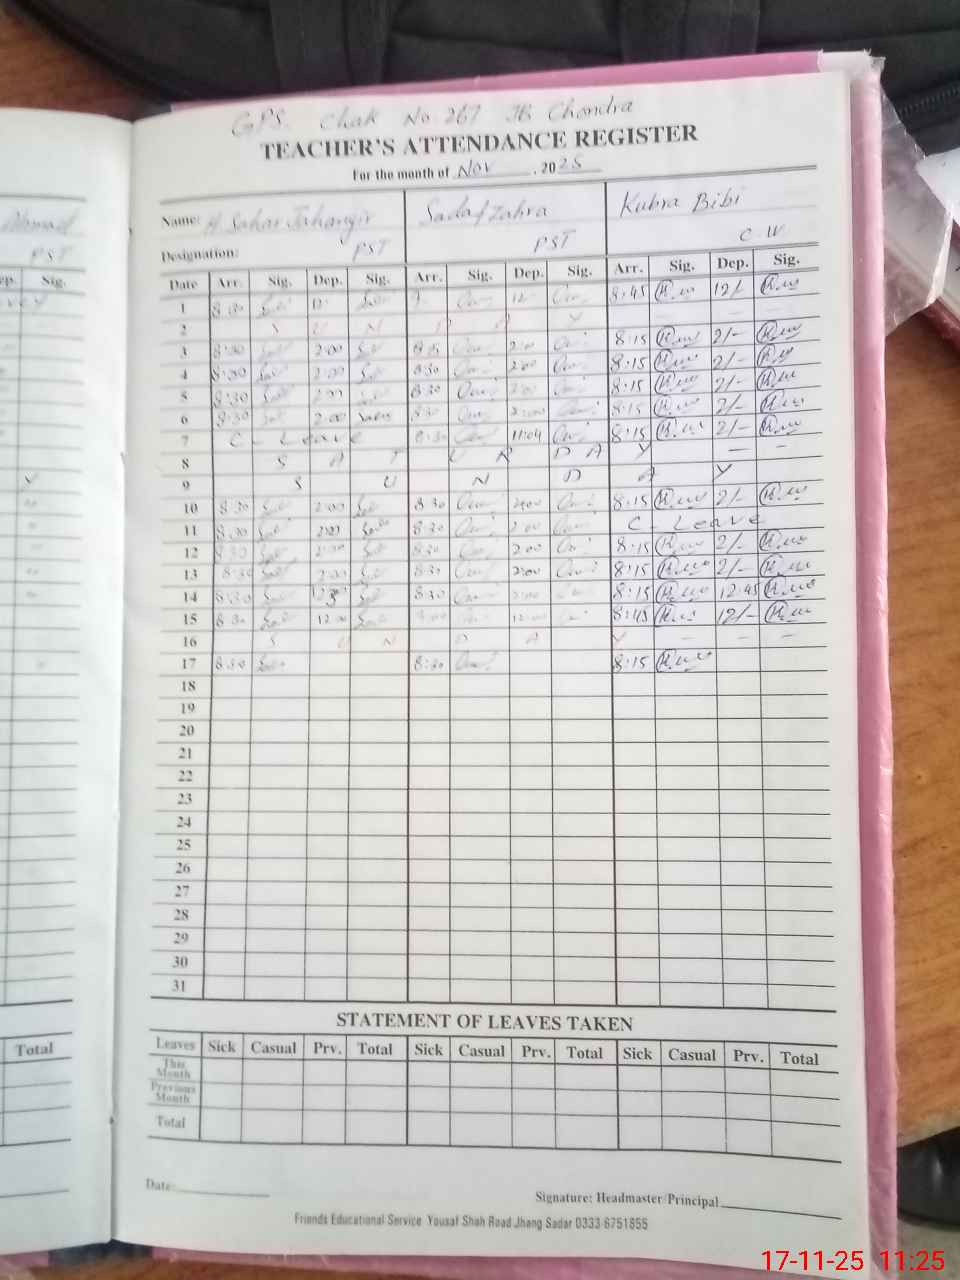 GPS. Chak No 267 JB Chondra
TEACHER'S ATTENDANCE REGISTER
For the month of Nov, 2025
Name: H Sahar Jahangir Sadaf Zahra Kubra Bibi
Designation: PST PST C.W
PST
Date Arr. Sig. Dep. Sig. Arr. Sig. Dep. Sig. Arr. Sig. Dep. Sig.
ep. Sig.
1 8:30 12 8:45 12/-
2 S U N D A Y
3 8:30 2:00 2:00 8:15 2/-
4 8:30 2:00 8:30 2:00 8:15 2/-
5 8:30 2:00 8:30 2:00 8:15 2/-
6 8:30 2:00 8:30 2:00 8:15 2/-
7 C - Leave 8:30 11:04 8:15 2/-
8 S A T U R D A Y — —
9 S U N D A Y
10 8:30 2:00 8:30 2:00 8:15 2/-
11 8:30 2:00 8:30 2:00 C - Leave
12 8:30 2:00 8:30 2:00 8:15 2/-
13 8:30 2:00 8:30 2:00 8:15 2/-
14 8:30 8:30 2:00 8:15 12:45
15 8:30 12:00 9:00 12:00 8:45 12/-
16 S U N D A Y – – –
17 8:30 8:30 8:15
18
19
20
21
22
23
24
25
26
27
28
29
30
31
STATEMENT OF LEAVES TAKEN
Total
Leaves Sick Casual Prv. Total Sick Casual Prv. Total Sick Casual Prv. Total
This Month
Previous Month
Total
Date:
Signature: Headmaster/Principal
Friends Educational Service Yousaf Shah Road Jhang Sadar 0333-6751855
17-11-25 11:25